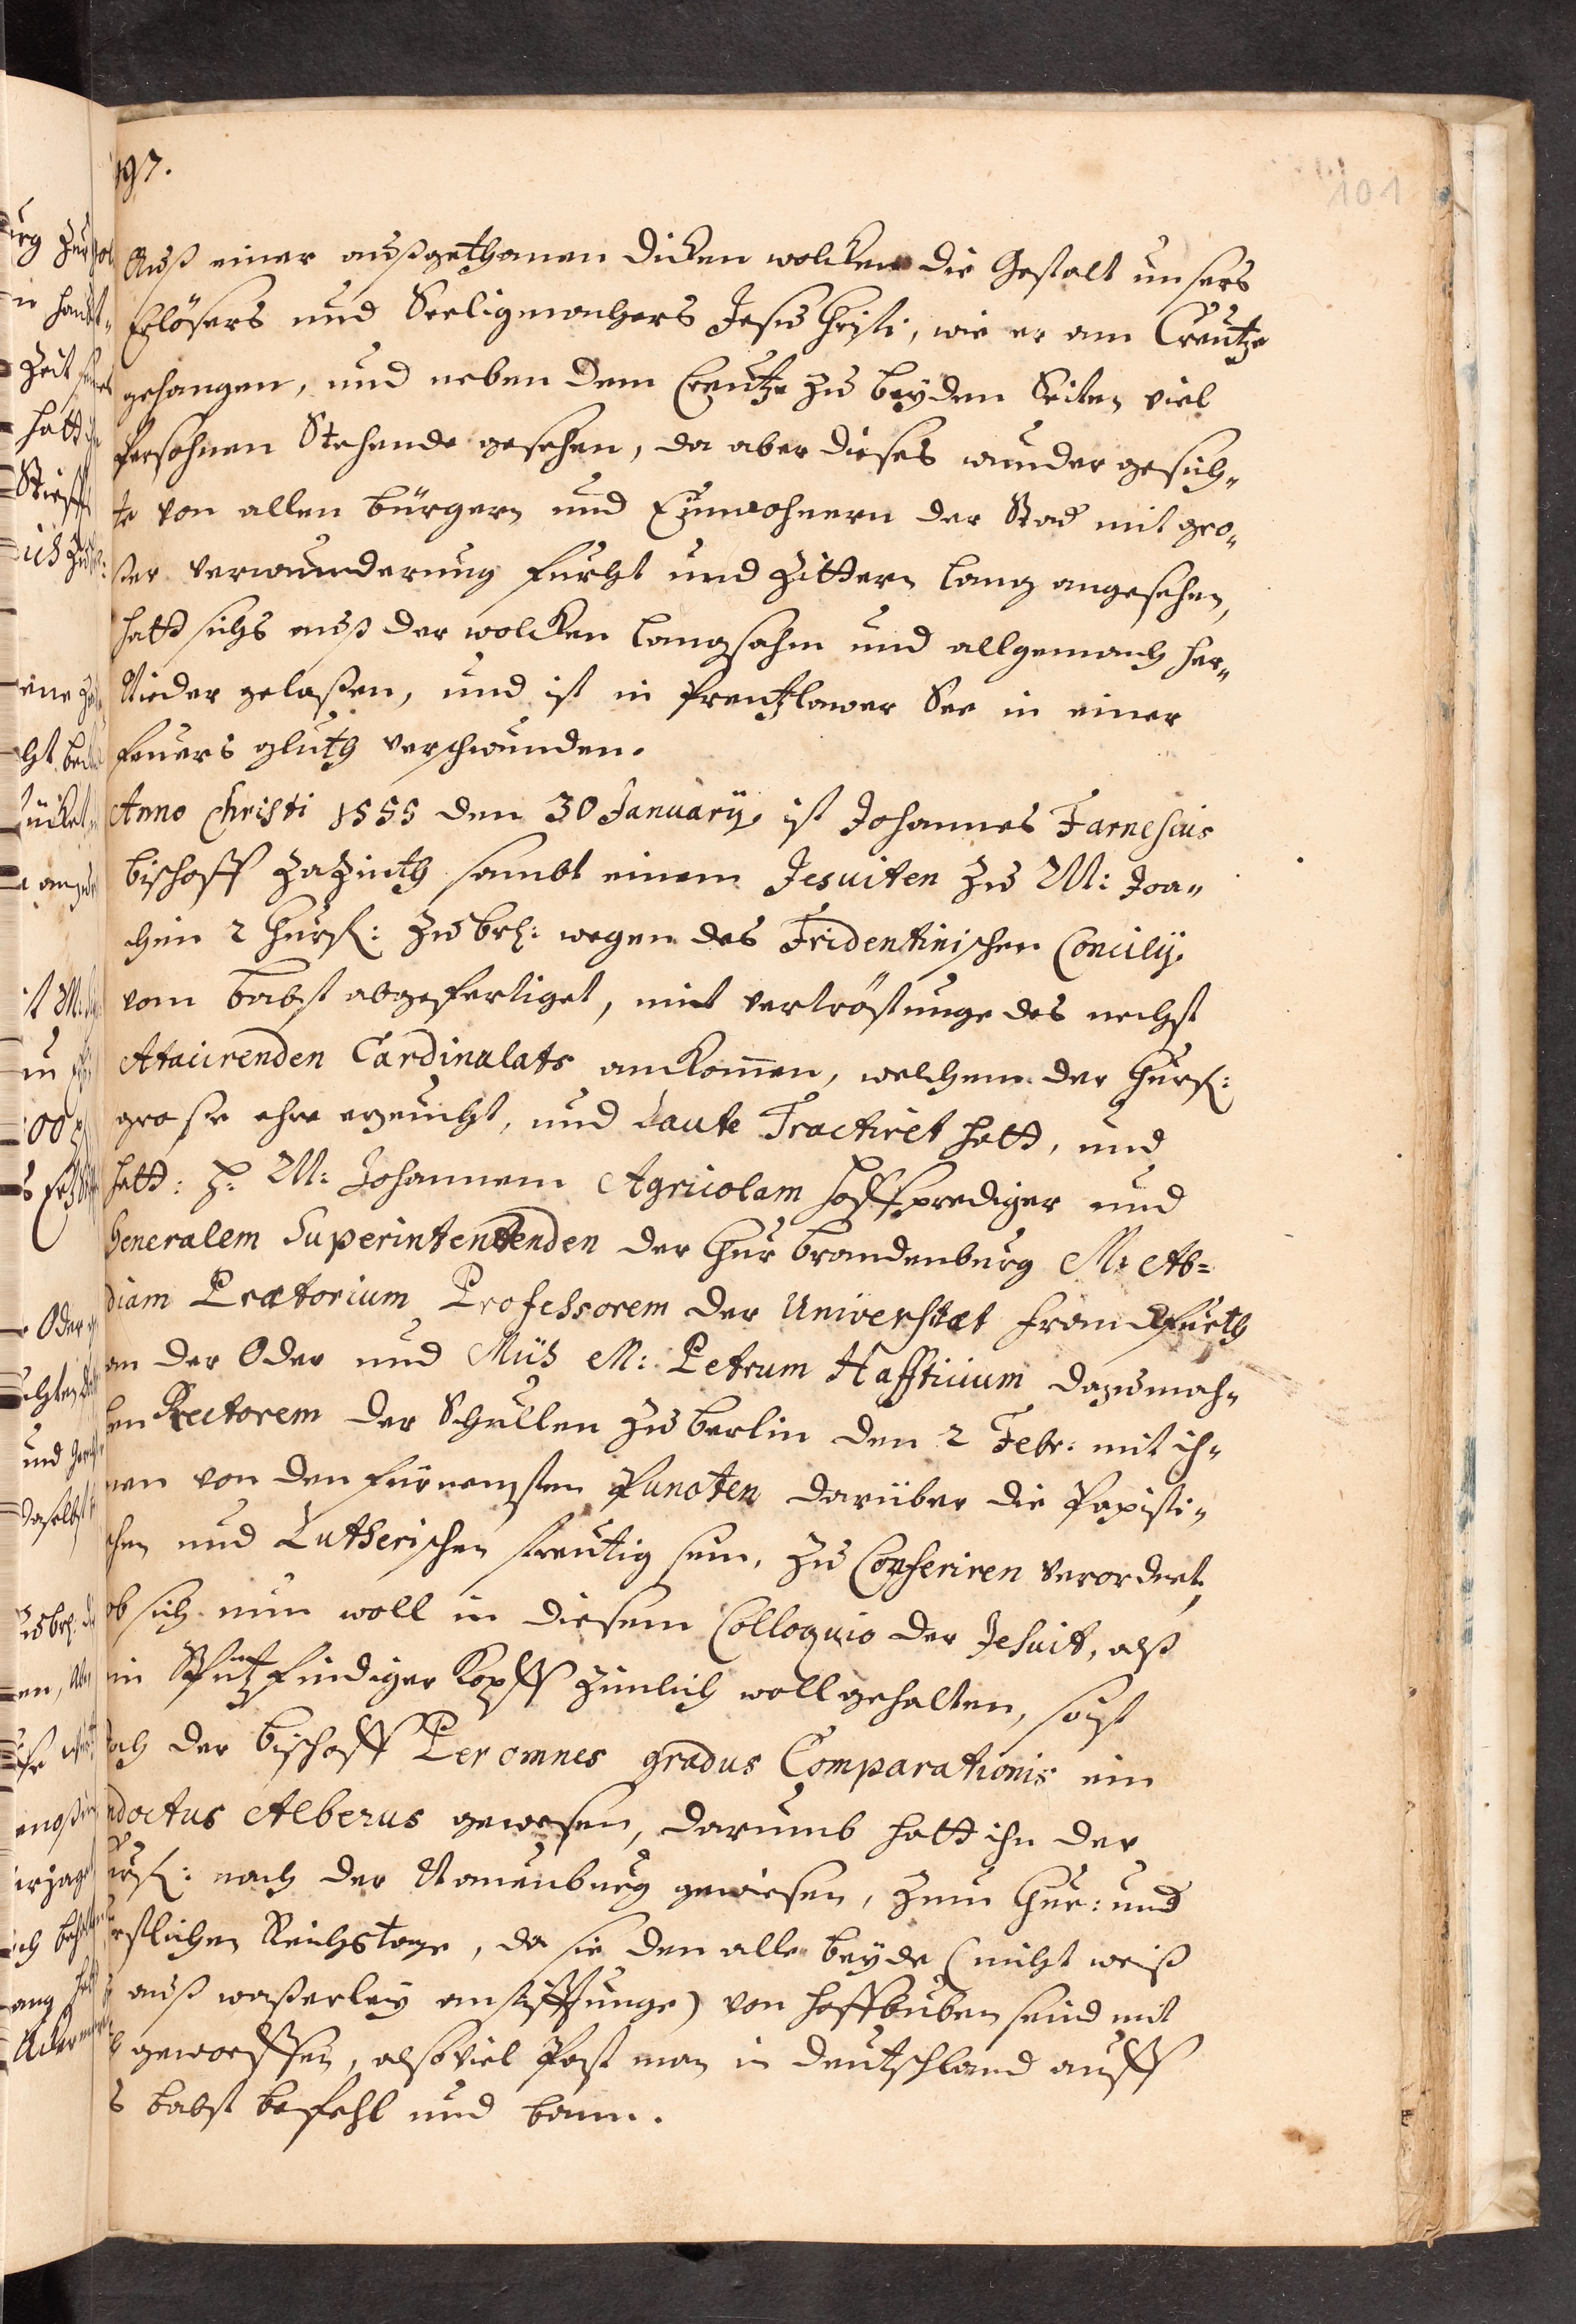 197.
101
Auß einer außgethanen dicken wolcken die Gestalt unsers
Erlösers und Seeligmachers Jesu Christi, wie er am Creutze
gehangen, und neben dem Creutze zu beyden Seiten viel
Persohnen Stehende gesehen, da aber dieses wunder gesich„
te von allen bürgern und Einwohnern der Stad mit gro„
ßer verwunderung furcht und zittern lang angesehen,
hatt sichs auß der wolcken langsahm und allgemach her„
Nieder gelaßen, und ist in Prentzlower See in einer
feuers gluth verschwunden.
Anno Christi 1555 den 30 January ist Johannes Farnesius
bischoff Zazinth sambt einem Jesuiten zu M: Joa„
chim 2 Churf: zu brl: wegen des Tridentinischen Concilÿ
vom babst abgefertiget, mit vertröstunge des nechst
Atacirenden Cardinalats ankom̄en, welchem der Churf:
große ehre erzeucht, und Laute Tractiret hatt, und
hatt: H. M: Johannem Agricolam hoffprediger und
Generalem Superintentenden der Chur brandenburg M: Ab=
diam Prætorium Professorem der Universitæt franckfurth
an der Oder und Müs M: Petrum Haffticium dazumah„
len Rectorem der Schullen zu berlin den 2 Febr: mit ih„
nen von den fürnemsten Puncten darüber die Papisti„
schen und Lutherischen streutig sein, zu Conferiren verordnet,
ob sich nun woll in diesem Colloquio der Jesuit, alß
ein Spitzfindiger Kopff zimlich woll gehalten, so ist
doch der bischoff Per omnes gradus Comparationis ein
indoctus Alberus gewesen, darumb hatt ihn der
Churf: nach der Naumburg gewiesen, zum Chur: und
fürstlichen Reichstage, da sie den alle beyde (nicht weiß
auß waßerley anstifftunge) von hoffbuben seind mit
geworffen, alsoviel Past man in deutschland auff
babst befehl und bann.